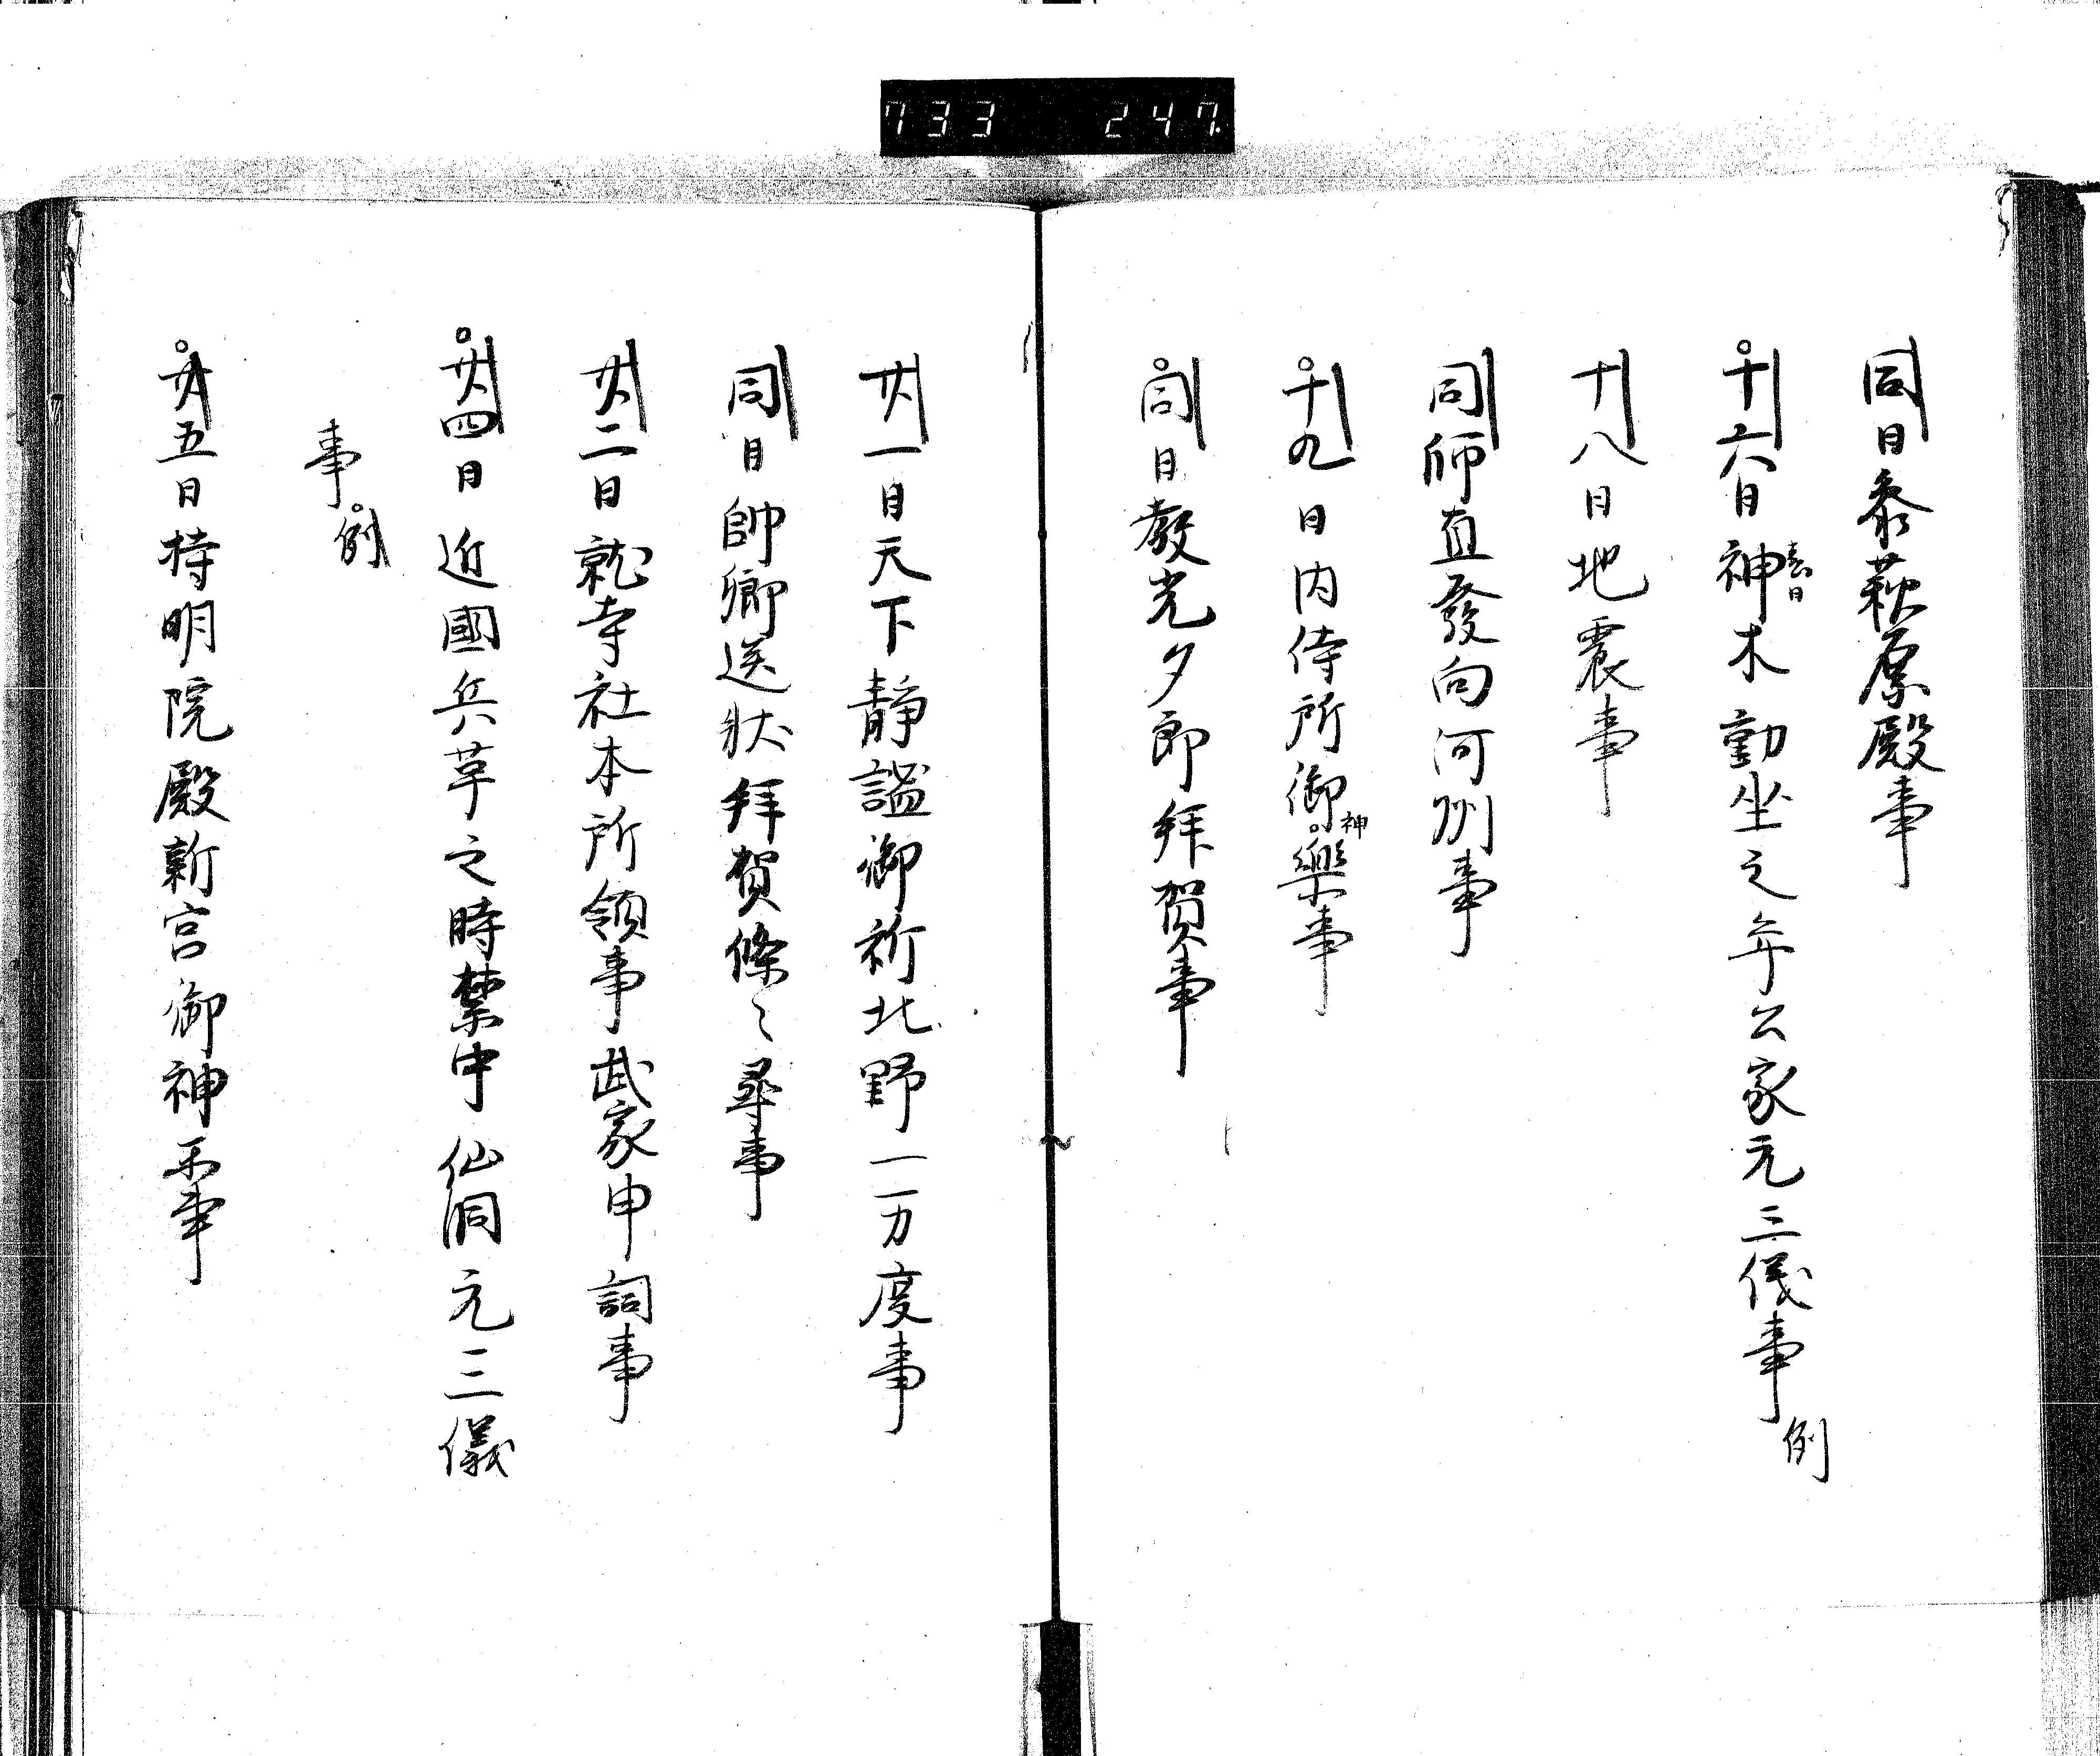 733 247
同日参萩原殿事
十六日春日神木動坐之年公家元三儀事例
十八日地震事
同師直發向河州事
十九日内侍所御神樂事
同日教光夕郎拝賀事
廿一日天下静謐御祈北野一万度事
同日帥卿送状拝賀條々尋事
廿二日就寺社本所領事武家申詞事
廿四日近國兵革之時禁中仙洞元三儀
事例
廿五日持明院殿新宮御神楽事